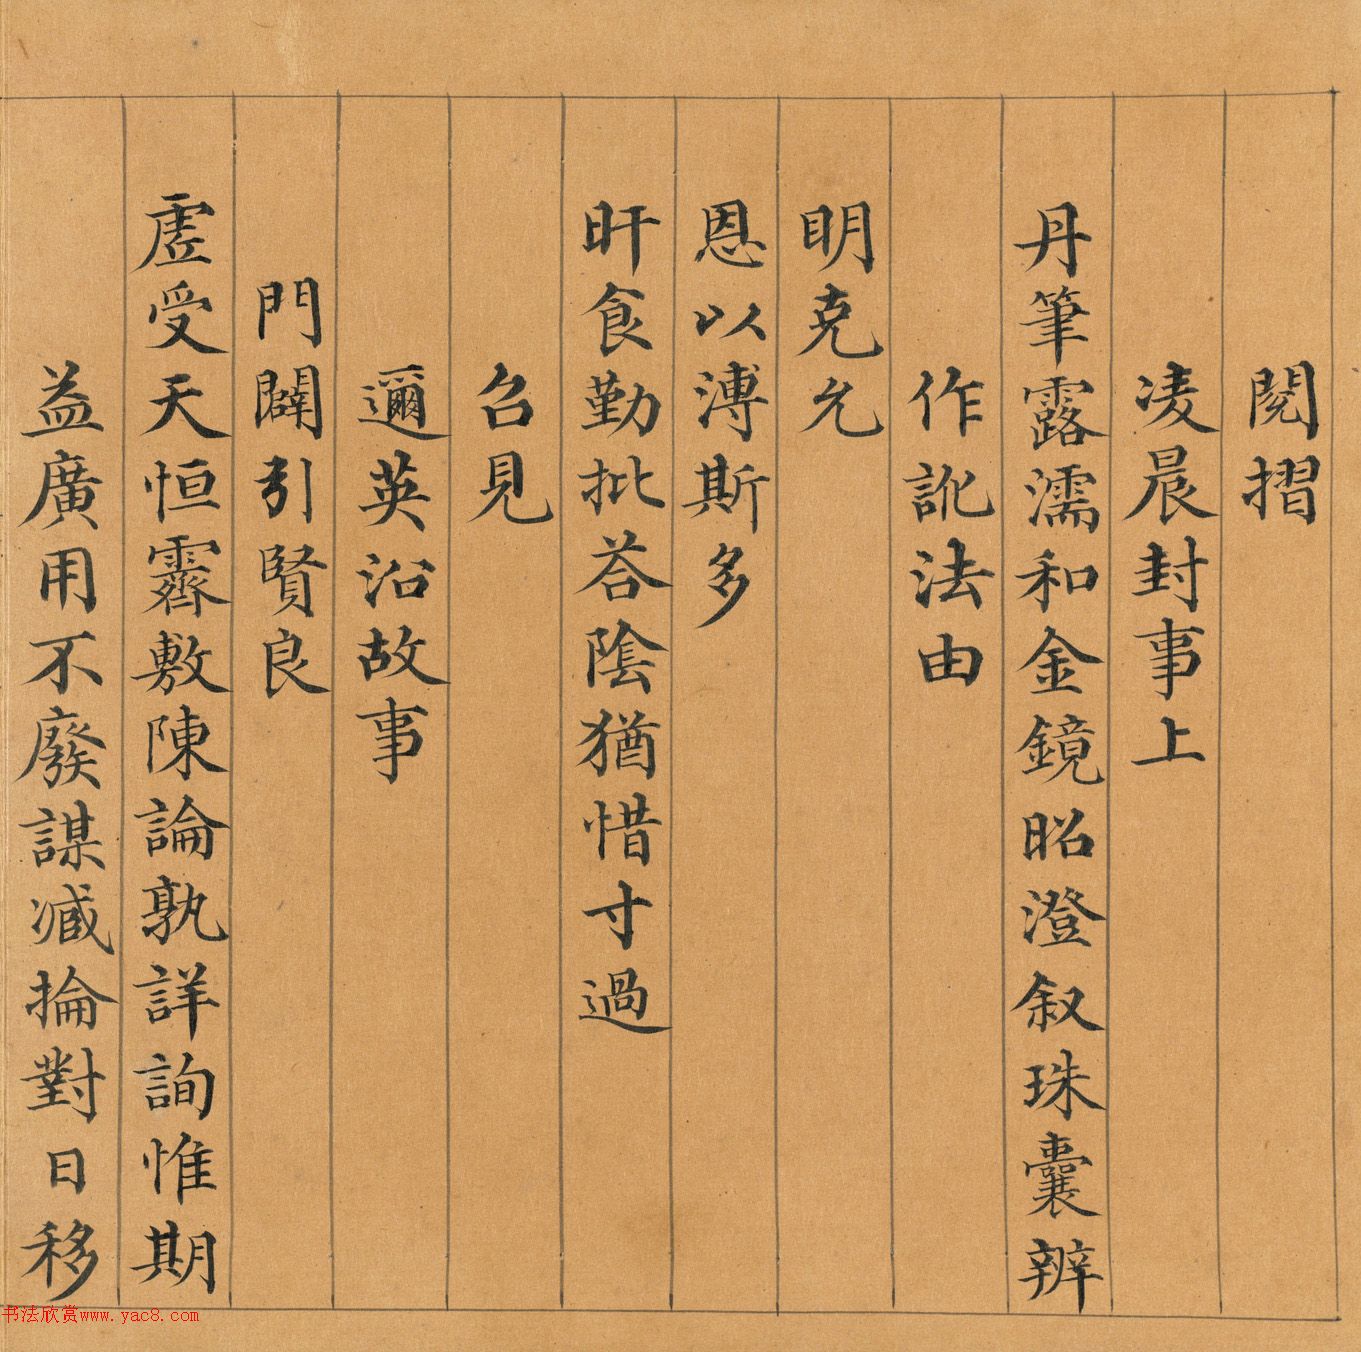 閱摺
凌晨封事上
丹筆露濡和金鏡昭澄叙珠囊辨
作訛法由
明克允
恩以溥斯多
旰食勤批荅陰猶惜寸過
召見
邇英沿故事
門闢引賢良
虛受天恒霽敷陳論孰詳詢惟期
益廣用不廢謀臧掄對日移
书法欣赏www.yac8.com